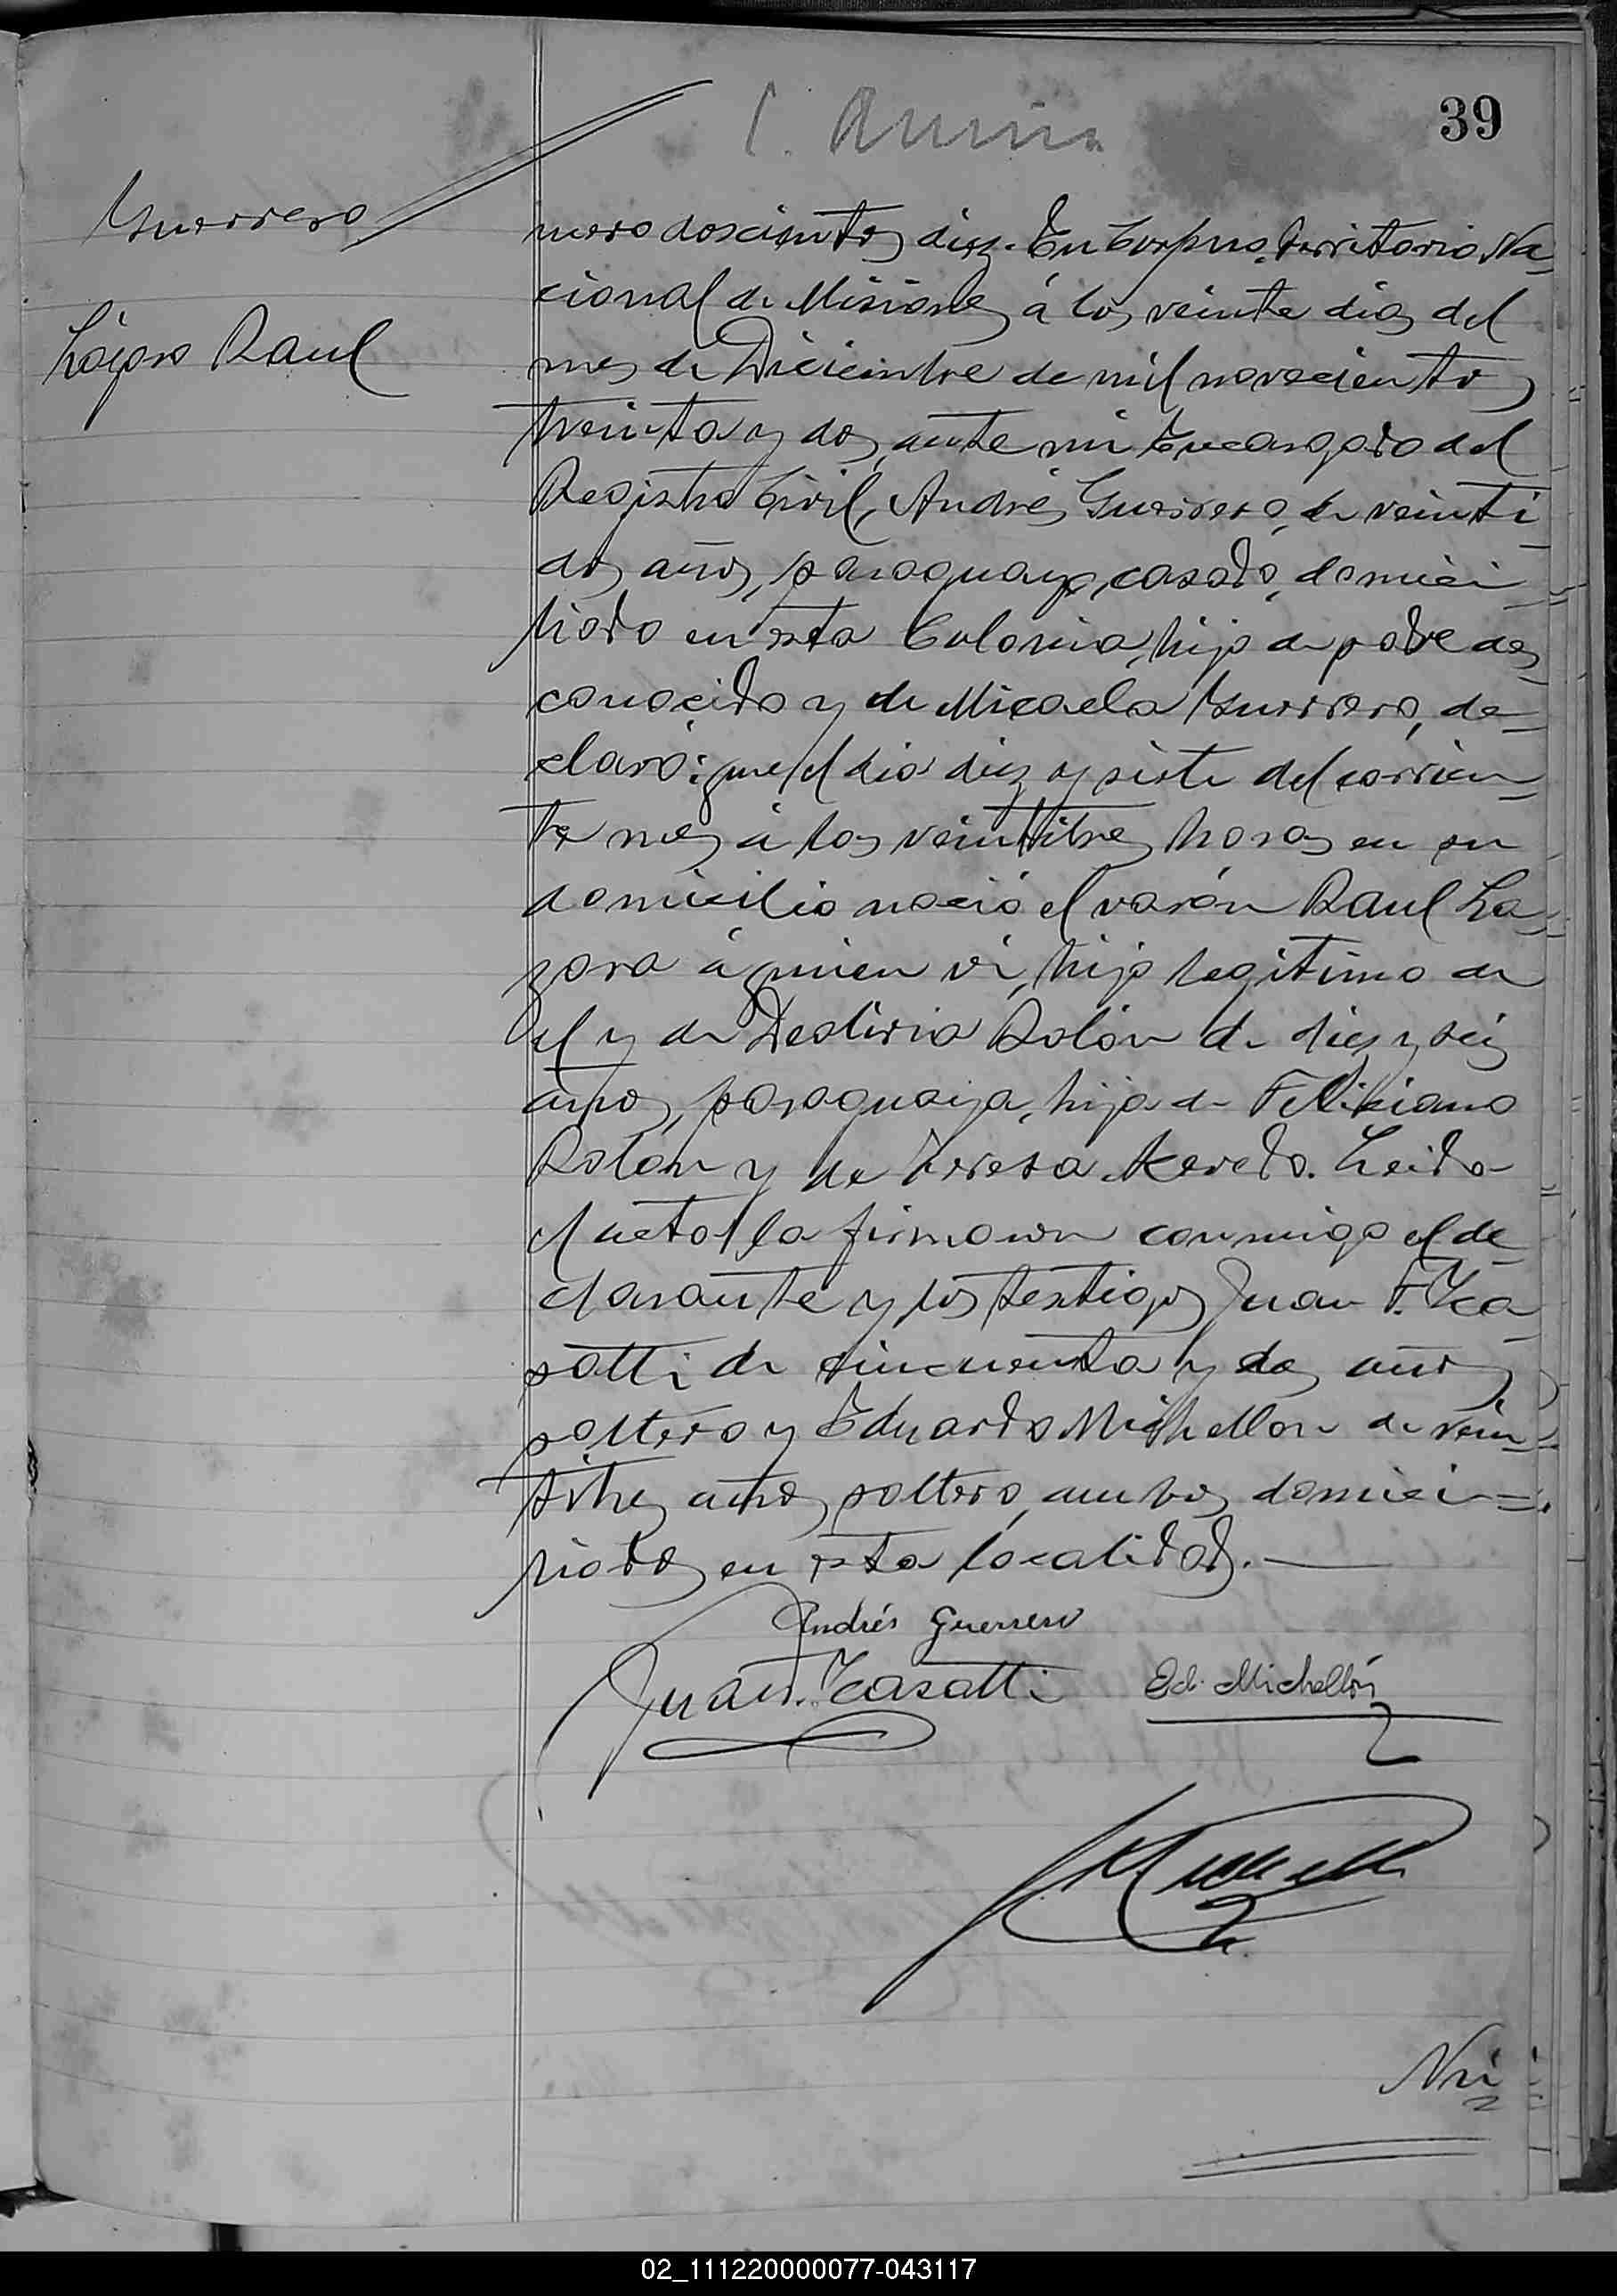 39
Guerrero
Lázaro Raul
mero doscientos diez. En Corpus, Territorio Na
cional de Misiones á los veinte dias del
mes de Diciembre de mil novecientos
treinta y dos, ante mi Encargado del
Registro Civil, Andrés Guerrero, de veinti
dos años, paraguayo, casado, domici
liado en esta Colonia, hijo de padre des
conocido y de Micaela Guerrero, de
claró: que el dia diez y siete del corrien
te mes á las veintitres horas en su
domicilio nació el varón Raul La
zaro á quien vi, hijo legitimo de
el y de Rolón de diez y seis
años, paraguaya, hija de Feliciano
Rolón y de Teresa Acevedo. Leida
el acta la firmaron conmigo el de
clarante y los testigos Juan F. Ca
satti de cincuenta y dos años
soltero y Eduardo Michellon de vein
titres años, soltero, ambos domici
liados en esta localidad.
Andrés Guerrero
Juan F. Casatti Ed. Michellón
Nú
02_111220000077-043117